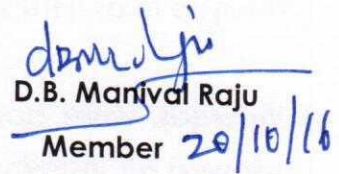 D.B. Manival Raju
Member 20/10/16